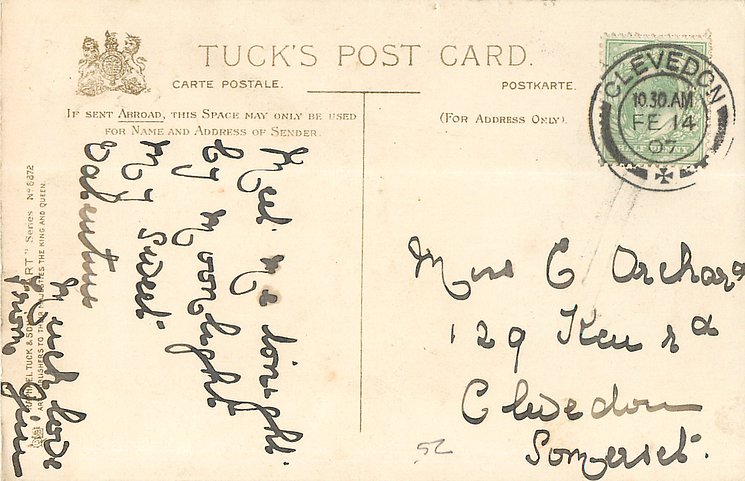 TUCK'S POST CARD.
CARTE POSTALE.
POSTKARTE.
IF SENT ABROAD, THIS SPACE MAY ONLY BE USED
FOR NAME AND ADDRESS OF SENDER.
(FOR ADDRESS ONLY).
CLEVEDON
10.30 AM
FE 14
07
Meet me tonight
by moonlight
My Sweet
Valentine
Much love
from Jim
Miss C Orchard
129 Ken rd
Clevedon
Somerset.
ART" Series No 6372
RAPHAEL TUCK & SONS
TO THEIR MAJESTIES THE KING AND QUEEN.
52